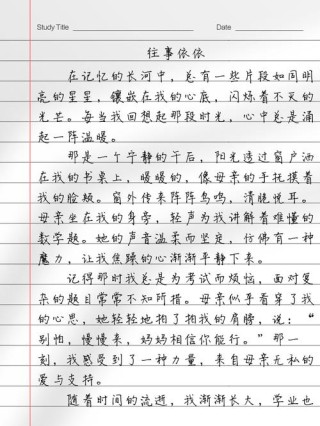 Study Title
Date
往事依依
在记忆的长河中，总有一些片段如同明
亮的星星，镶嵌在我的心底，闪烁着不灭的
光芒。每当我回想起那段时光，心中总是涌
起一阵温暖。
那是一个宁静的午后，阳光透过窗户洒
在我的书桌上，暖暖的，像母亲的手抚摸着
我的脸颊。窗外传来阵阵鸟鸣，清脆悦耳。
母亲坐在我的身旁，轻声为我讲解着难懂的
数学题。她的声音温柔而坚定，仿佛有一种
魔力，让我焦躁的心渐渐平静下来。
记得那时我总是为考试而烦恼，面对复
杂的题目常常不知所措。母亲似乎看穿了我
的心思，她轻轻地拍了拍我的肩膀，说：“
别怕，慢慢来，妈妈相信你能行。”那一
刻，我感受到了一种力量，来自母亲无私的
爱与支持。
随着时间的流逝，我渐渐长大，学业也